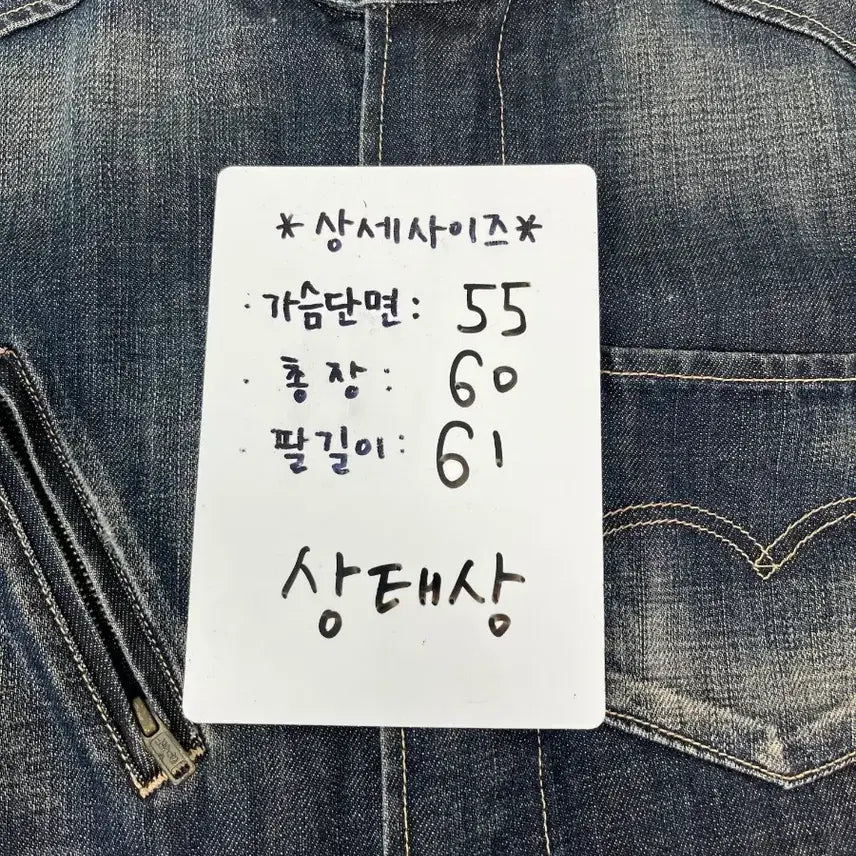 *상세사이즈*
· 가슴단면 : 55
· 총장 : 60
· 팔길이 : 61
상태상